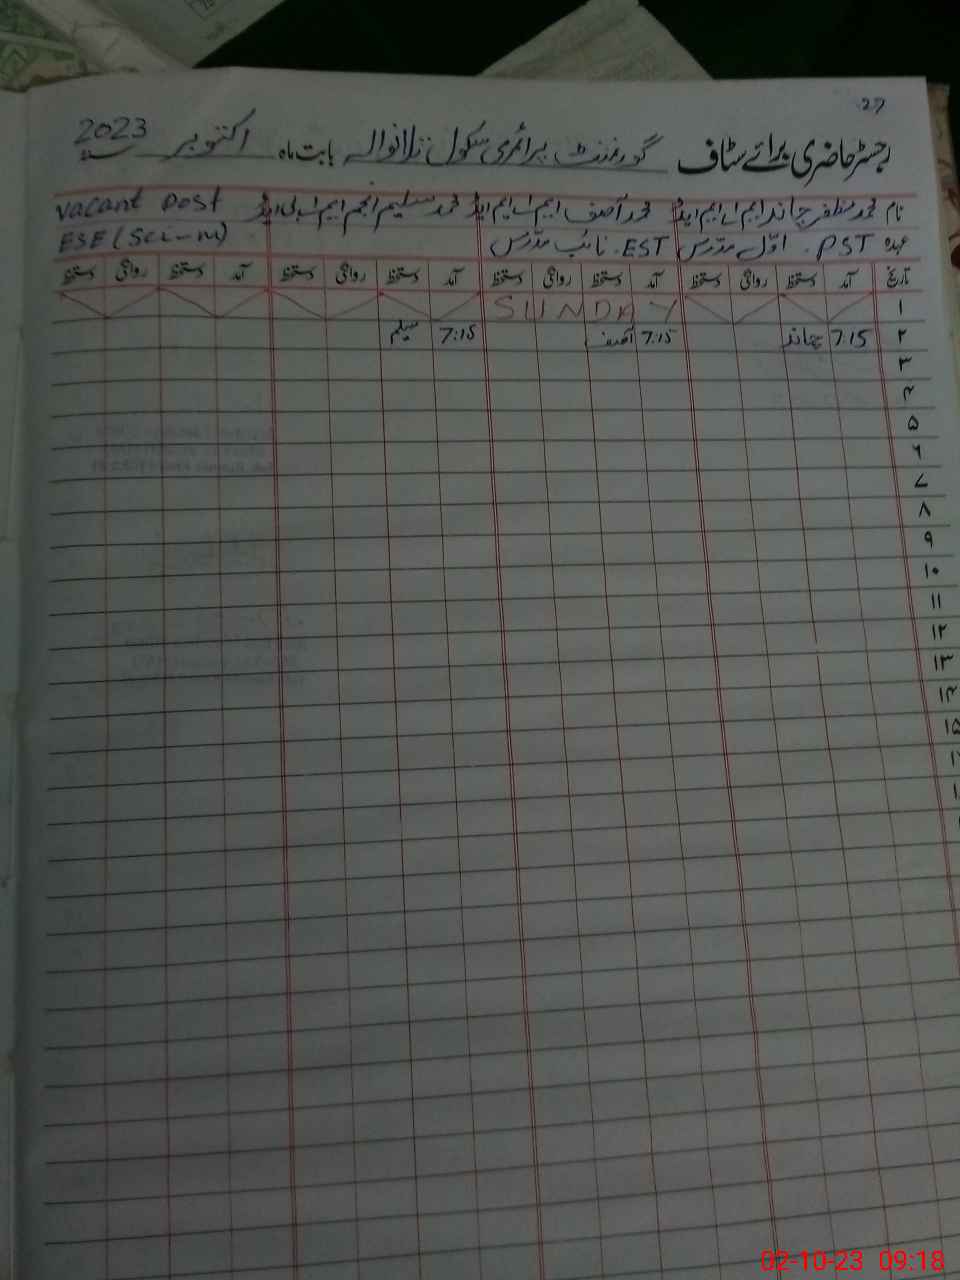 27
رجسٹر حاضری برائے سٹاف گورنمنٹ پرائمری سکول بابت ماہ اکتوبر سنہ 2023
نام محمد مظفر چاند ایم اے ایم ایڈ محمد آصف ایم اے ایم ایڈ محمد سلیم انجم ایم اے بی ایڈ vacant post
عہدہ PST. اوّل مدرس EST. نائب مدرس ESE (Sci-M)
تاریخ آمد دستخط روانگی دستخط آمد دستخط روانگی دستخط آمد دستخط روانگی دستخط آمد دستخط روانگی دستخط
۱ SUNDAY
۲ 7:15 چاند 7:15 آصف 7:15 سلیم
۳
۴
۵
۶
۷
۸
۹
۱۰
۱۱
۱۲
۱۳
۱۴
۱۵
02-10-23 09:18